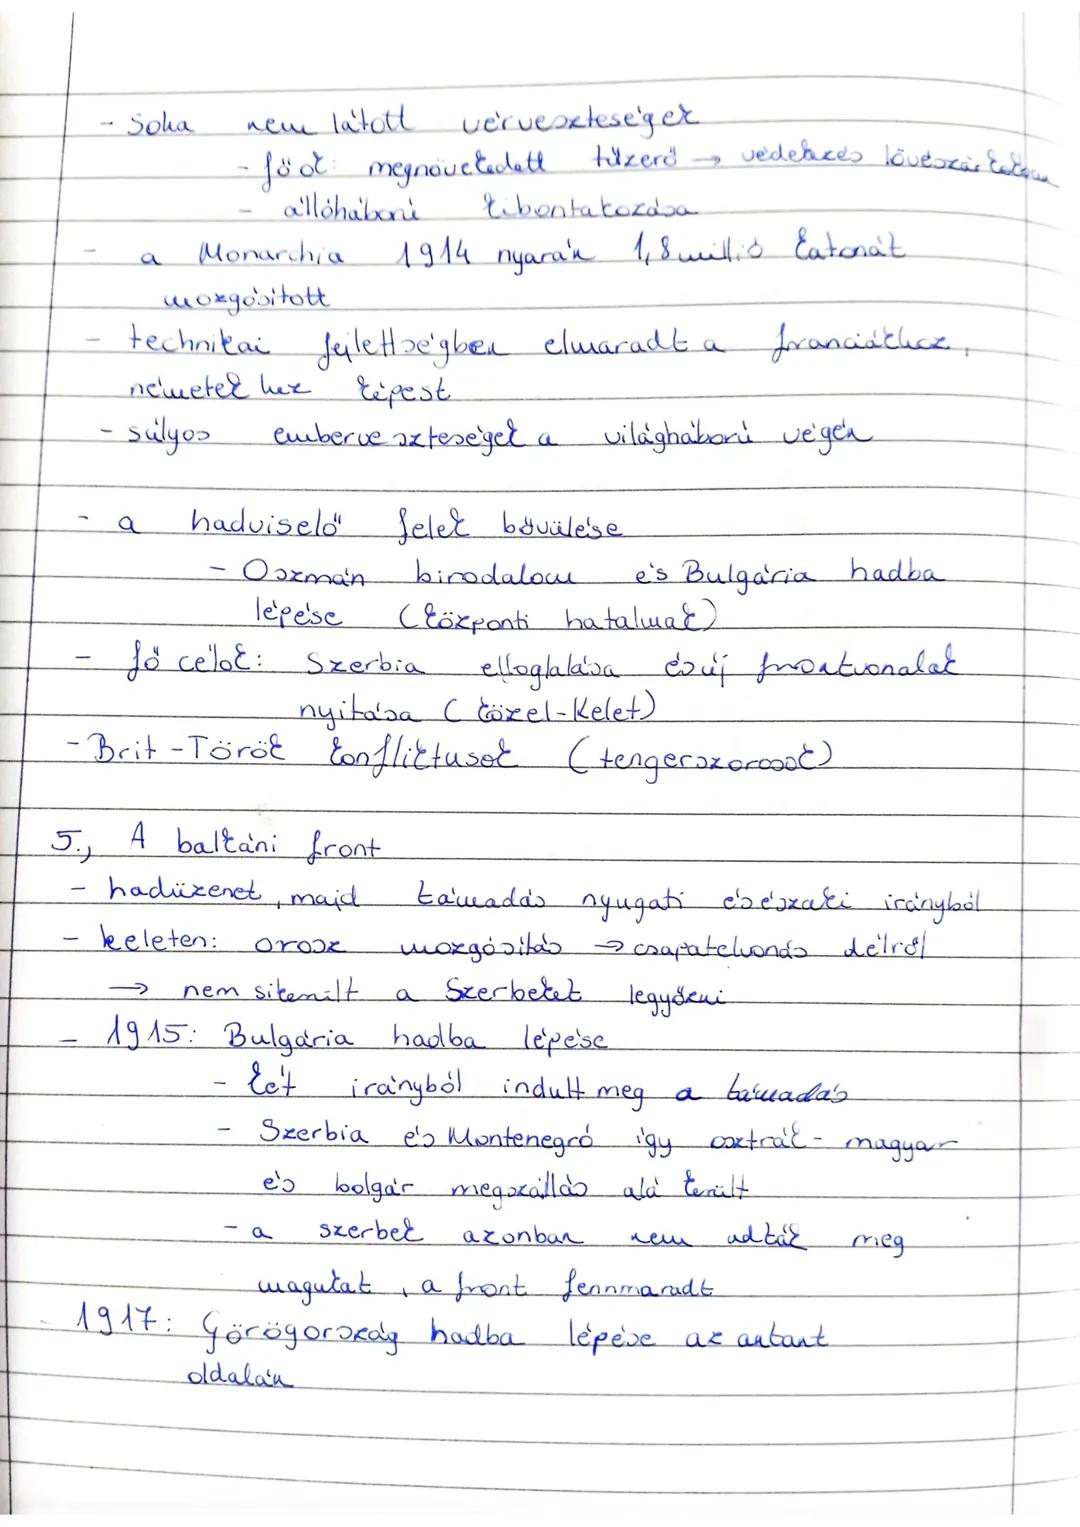 - Soha nem látott vérveszteségek
- fő ok: megnövekedett tűzerő → védekezés lövészárkokban
- állóháború kibontakozása
- a Monarchia 1914 nyarán 1,8 millió katonát
mozgósított
- technikai fejlettségben elmaradt a franciákhoz,
németekhez képest
- súlyos emberveszteségek a világháború végén
- a hadviselő felek bővülése
- Oszmán birodalom és Bulgária hadba
lépése (központi hatalmak)
- fő célok: Szerbia elfoglalása és új frontvonalak
nyitása (közel-Kelet)
- Brit-Török konfliktusok (tengerszorosok)
5., A balkáni front
- hadüzenet, majd támadás nyugati és északi irányból
- keleten: orosz mozgósítás → csapatelvonás délről
→ nem sikerült a Szerbeket legyőzni
- 1915: Bulgária hadba lépése
- két irányból indult meg a támadás
- Szerbia és Montenegró így osztrák-magyar
és bolgár megszállás alá került
- a szerbek azonban nem adták meg
magukat, a front fennmaradt
- 1917: Görögország hadba lépése az antant
oldalán